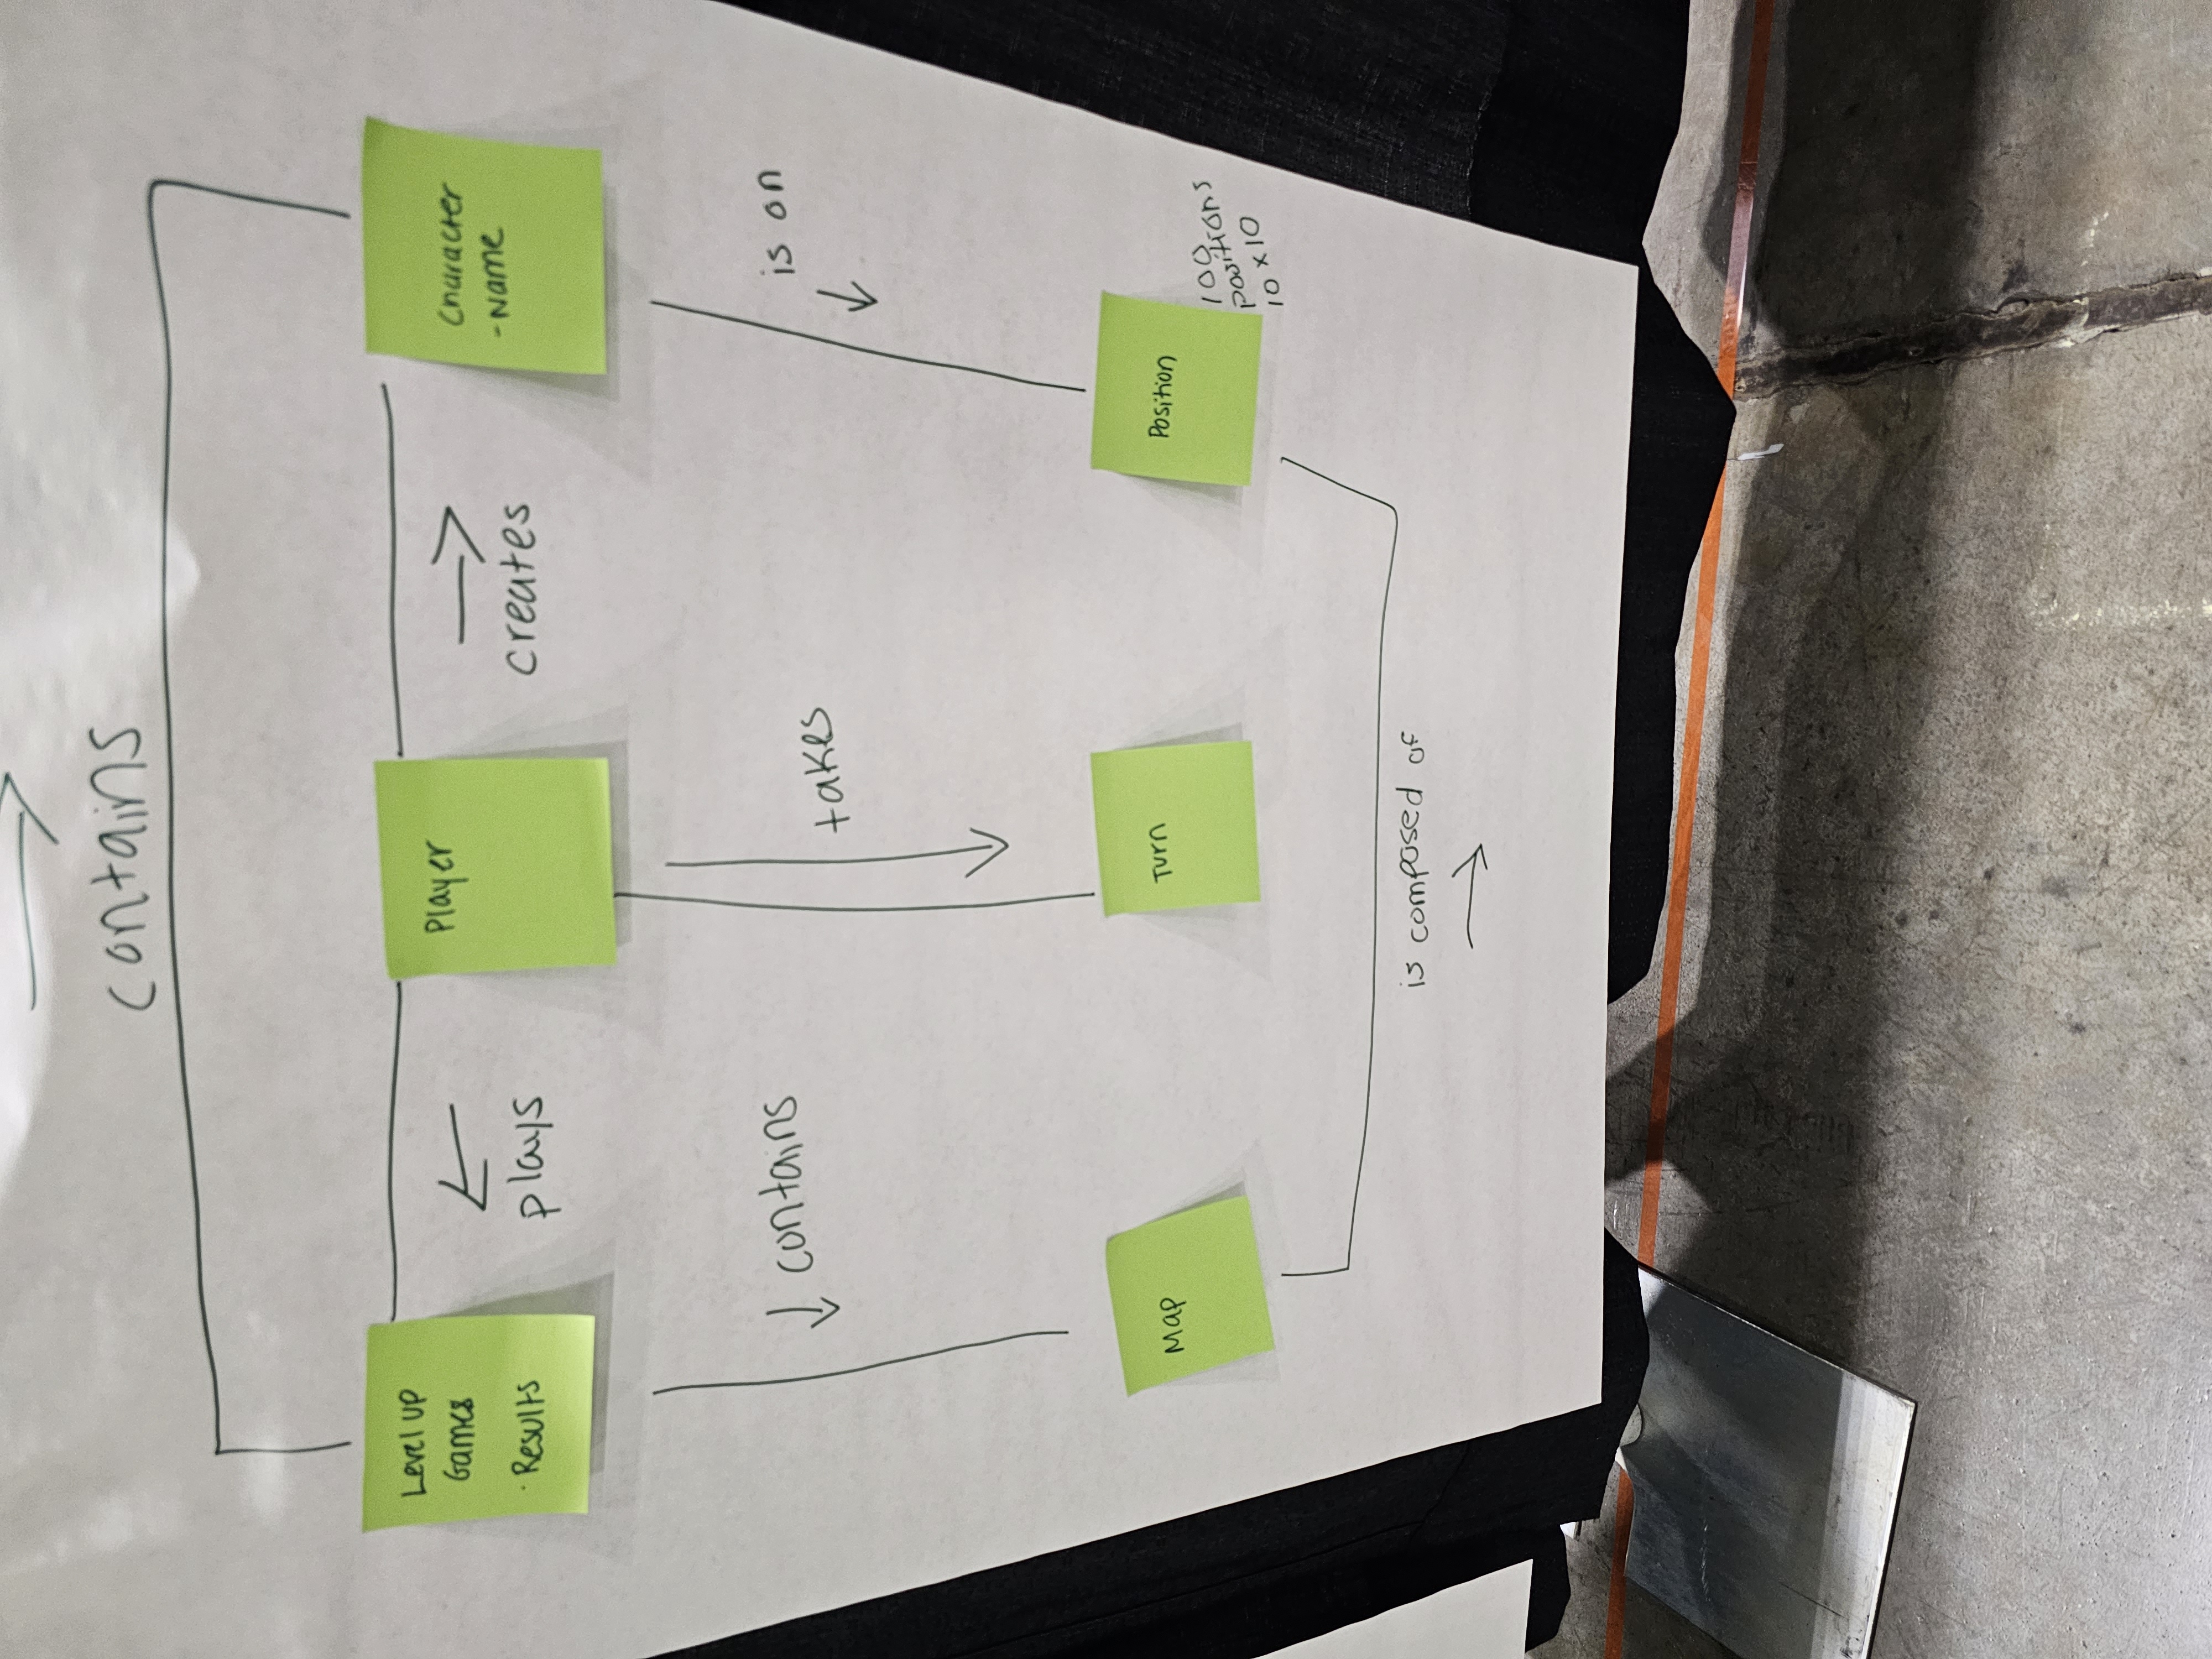 contains
Level up
Games
· Results
plays
Player
creates
Character
- Name
contains
takes
is on
Map
Turn
Position
100
positions
10 x 10
is composed of